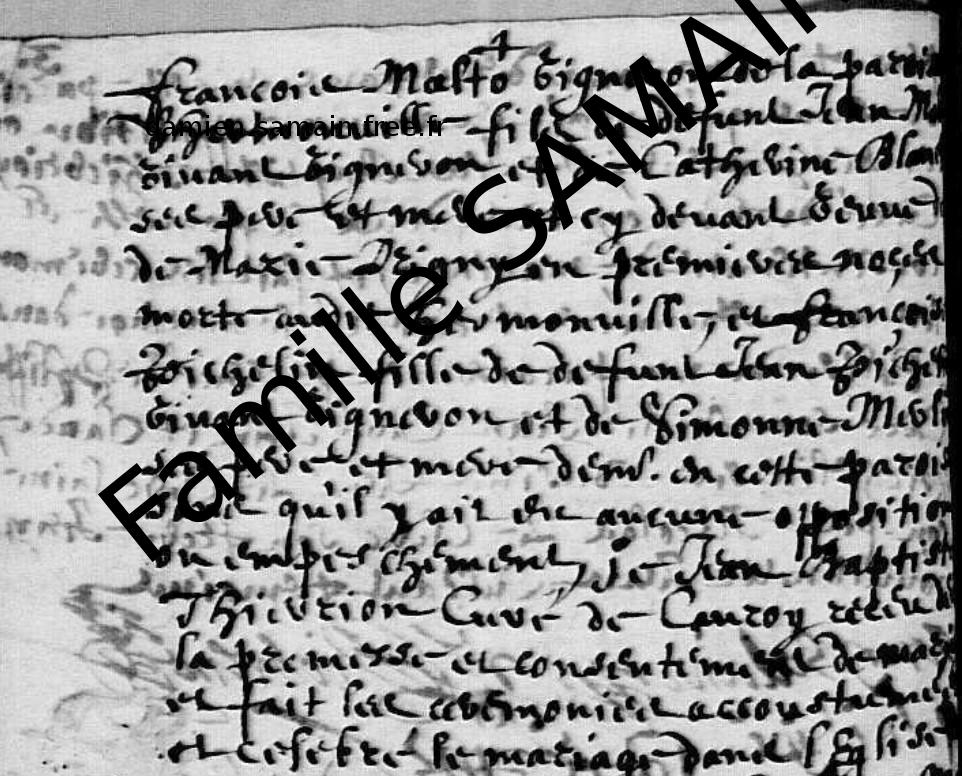 françoise Malto Vigneron de la parois
d'hermonville fils de defunt Jean Ma
vivant vigneron et de Catherine Blan
ses pere et mere et cy devant veuve
de Marie en premieres noces
morte audit hermonville, et françoise
fille de defunt Jean
vivant vigneron et de Simonne
ses pere et mere dem. en cette parois
sans qu'il y ait eu aucune opposition
ou empeschement, je Jean Baptiste
Thierion Curé de Cauroy receu
la promesse et consentement de mari
et fait les ceremonies accoustumé
et celebré le mariage dans l'Eglise
damien.samain.free.fr
Famille SAMAI